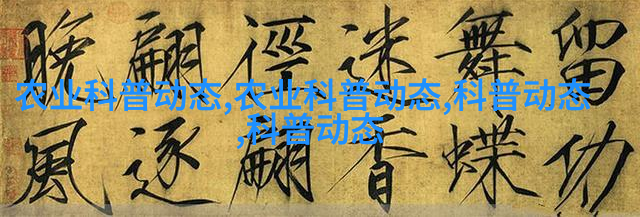 农业科普动态,农业科普动态,科普动态
,科普动态
留功
舞蝶
迷香
徑翩
翩逐
晚風